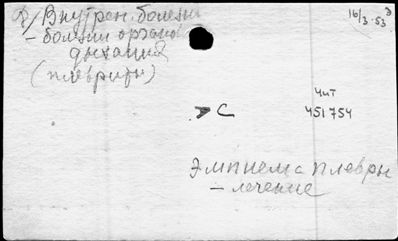 Ф/ Внутрен. болезни
16/3-53
– болезни органов
дыхания
(плевриты)
С
Чит
451754
Эмпиема плевры
– лечение